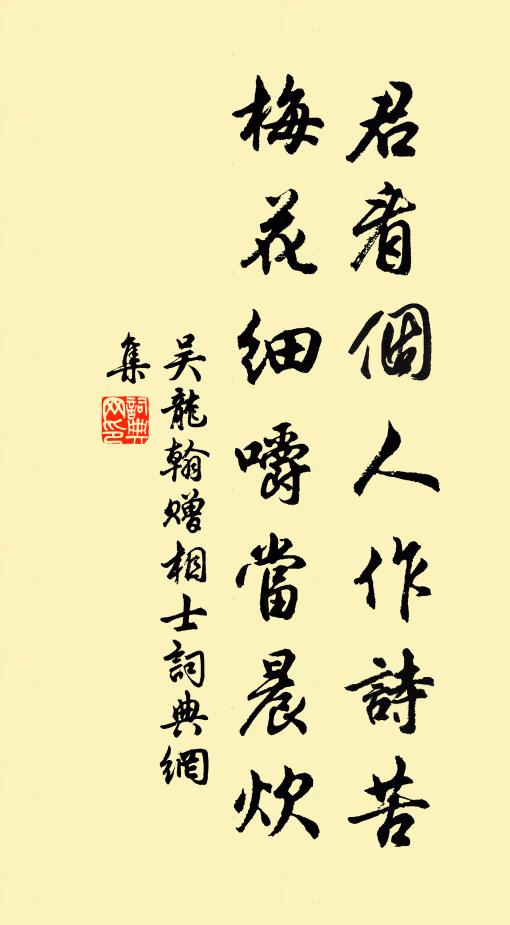 君看個人作詩苦
梅花細嚼當晨炊
吴龍翰赠相士詞典網
集
詞典网印